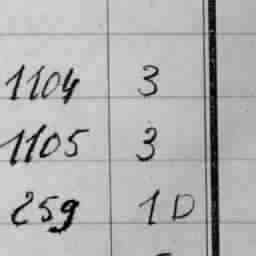 1104 3
1105 3
259 1D